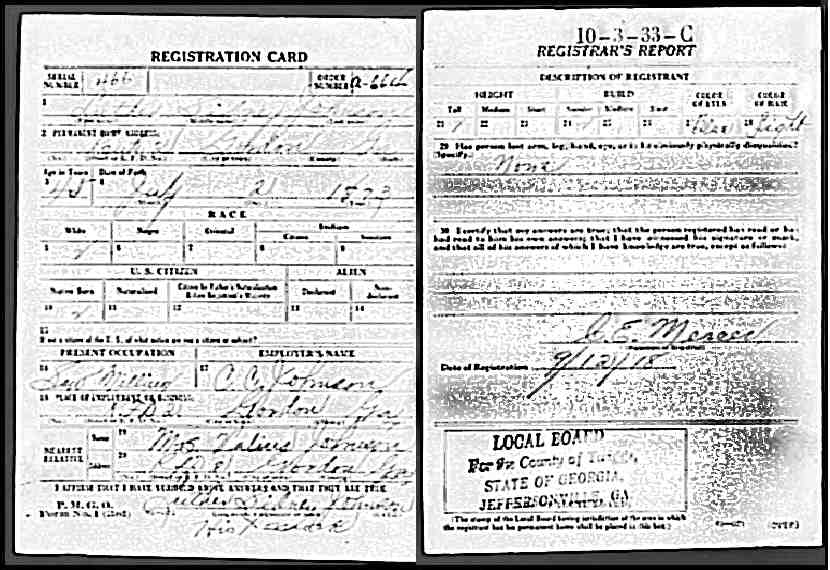 REGISTRATION CARD
SERIAL NUMBER 466
ORDER NUMBER
1 Sidney Johnson
2 PERMANENT HOME ADDRESS:
Gordon Ga
Age in Years Date of Birth
3 45 4 July 2 1873
RACE
White Negro Oriental Indian
Citizen
5 6 7 8 9
U. S. CITIZEN ALIEN
Native Born Naturalized Citizen by Father's Naturalization Before Registrant's Majority Declarant Non-declarant
10 11 12 13 14
15
If not a citizen of the U. S., of what nation are you a citizen or subject?
PRESENT OCCUPATION EMPLOYER'S NAME
16 17 C. C. Johnson
18 PLACE OF EMPLOYMENT OR BUSINESS:
Gordon Ga
NEAREST RELATIVE
Name 19 Mrs Johnson
Address 20 Gordon Ga
I AFFIRM THAT I HAVE VERIFIED ABOVE ANSWERS AND THAT THEY ARE TRUE
P. M. G. O.
Form No. 1 (Red)
Sidney Johnson
His mark
10-3-33-C
REGISTRAR'S REPORT
DESCRIPTION OF REGISTRANT
HEIGHT BUILD COLOR OF EYES COLOR OF HAIR
Tall Medium Short Slender Medium Stout
21 22 23 24 25 26 27 Blue 28 Light
29 Has person lost arm, leg, hand, eye, or is he obviously physically disqualified?
(Specify.)
None
30 I certify that my answers are true; that the person registered has read or has
had read to him his own answers; that I have witnessed his signature or mark,
and that all of his answers of which I have knowledge are true, except as follows:
C. E. Mercer
Date of Registration 9/12/18
LOCAL BOARD
For the County of
STATE OF GEORGIA,
JEFFERSONVILLE, GA.
(The stamp of the Local Board having jurisdiction of the area in which
the registrant has his permanent home shall be placed in this box.)
(OVER)